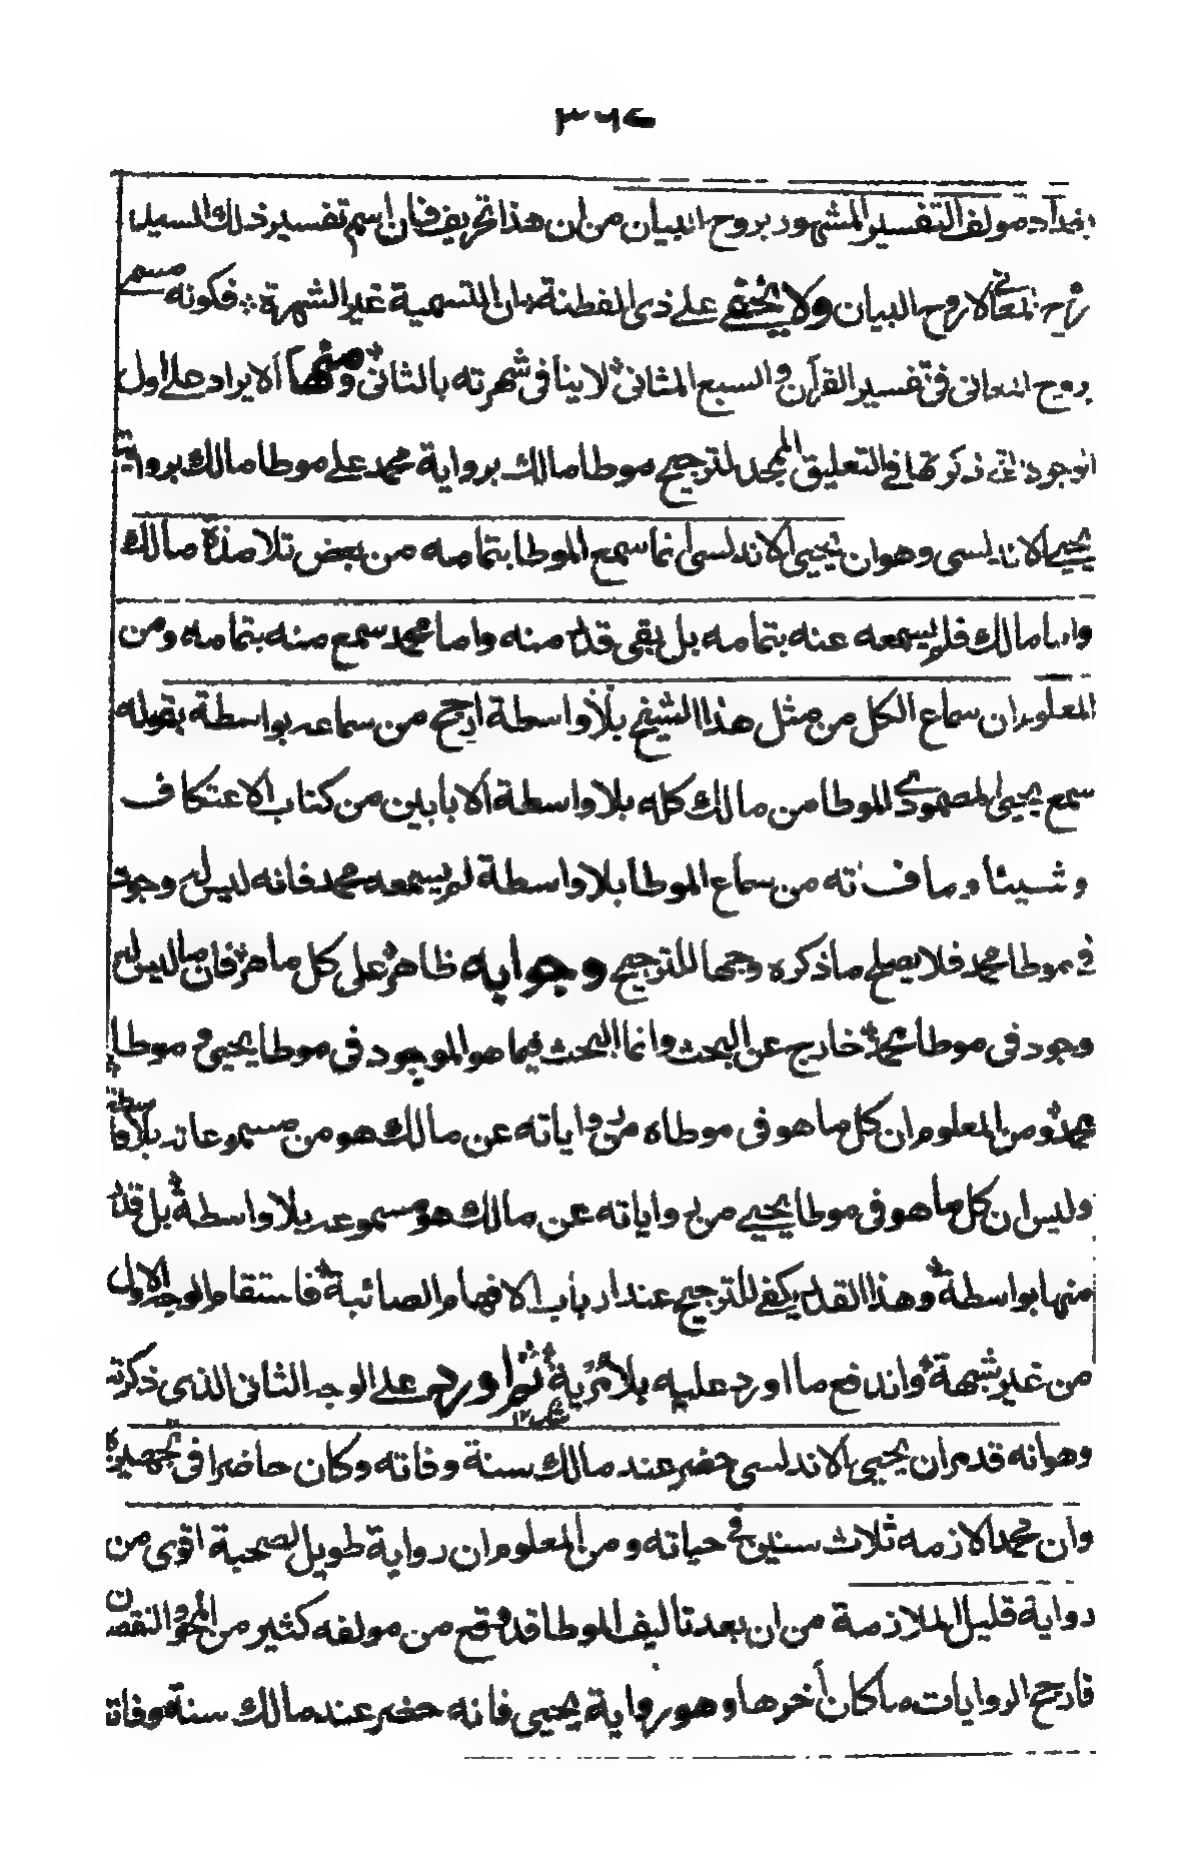 ٣٦٤
بغداد مولف التفسير المشهور بروح البيان من ان هذا تحريف فان اسم تفسير ذلك السيد
روح المعاني لا روح البيان ولا يخفى على ذى الفطنة ان التسمية غير الشهرة فكونه مسمى
بروح المعانى فى تفسير القرآن و السبع المثانى لا ينافى شهرته بالثانى ومنها الايراد على اول
الوجوه التى ذكرتها فى التعليق الممجد لترجيح موطا مالك برواية محمد على موطا مالك برواية
يحيى الاندلسى وهو ان يحيى الاندلسى انما سمع الموطا بتمامه من بعض تلامذة مالك
واما مالك فلم يسمعه عنه بتمامه بل بقى قدر منه واما محمد سمع منه بتمامه ومن
المعلوم ان سماع الكل من مثل هذا الشيخ بلا واسطة ارجح من سماعه بواسطة بقوله
سمع يحيى المصمودى الموطا من مالك كله بلا واسطة الا بابين من كتاب الاعتكاف
و شيئا و ما فاته من سماع الموطا بلا واسطة لم يسمعه محمد فانه ليس له وجود
فى موطا محمد فلا يصلح ما ذكره وجها للترجيح وجوابه ظاهر على كل ماهر فان ما ليس له
وجود فى موطا محمد خارج عن البحث وانما البحث فيما هو الموجود فى موطا يحيى و موطا
محمد ومن المعلوم ان كل ما هو فى موطاه من رواياته عن مالك هو من مسموعاته بلا واسطة
وليس ان كل ما هو فى موطا يحيى من رواياته عن مالك هو مسموعه بلا واسطة بل قدر
منها بواسطة وهذا القدر يكفى للترجيح عند ارباب الافهام الصائبة فاستقام الوجه الاول
من غير شبهة واندفع ما اورد عليه بلا مرية ثم اورد على الوجه الثانى الذى ذكرته
شك ١٢
وهو انه قد مر ان يحيى الاندلسى حضر عند مالك سنة وفاته وكان حاضرا فى تجهيزه
وان محمدا لازمه ثلاث سنين فى حياته ومن المعلوم ان رواية طويل الصحبة اقوى من
رواية قليل الملازمة من ان بعد تاليف الموطا قد وقع من مولفه كثير من المحو والنقصان
فارجح الروايات ما كان أخرها وهو رواية يحيى فانه حضر عند مالك سنة وفاته